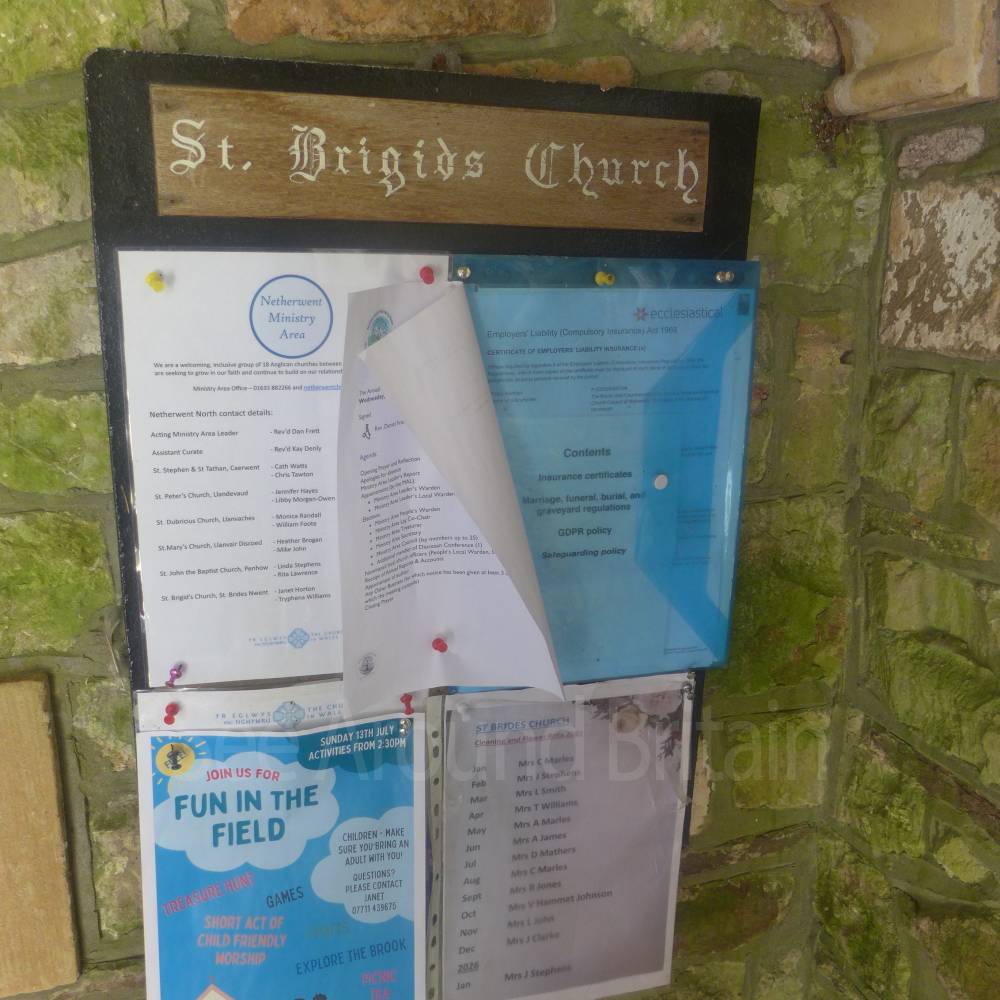 St. Brigids Church
Netherwent
Ministry
Area
We are a welcoming, inclusive group of 18 Anglican churches between
are seeking to grow in our faith and continue to build on our
Ministry Area Office – 01633 882266 and
Netherwent North contact details:
Acting Ministry Area Leader - Rev'd Dan Frett
Assistant Curate - Rev'd Kay Denly
St. Stephen & St Tathan, Caerwent - Cath Watts
- Chris Tawton
St. Peter's Church, Llandevaud - Jennifer Hayes
- Libby Morgan-Owen
St. Dubricious Church, Llanvaches - Monica Randall
- William Foote
St.Mary's Church, Llanvair Discoed - Heather Brogan
- Mike John
St. John the Baptist Church, Penhow - Linda Stephens
- Rita Lawrence
St. Brigid's Church, St. Brides Nwent - Janet Horton
- Tryphena Williams
YR EGLWYS THE CHURCH
YNG NGHYMRU IN WALES
The Annual
Wednesday,
Signed
Agenda
Opening Prayer and Reflection
Apologies for absence
Ministry Area Leader's Report
Appointments (by the MAL):
• Ministry Area Leader's Warden
• Ministry Area Leader's Local Warden
Elections:
• Ministry Area People's Warden
• Ministry Area Lay Co-Chair
• Ministry Area Treasurer
• Ministry Area Secretary
• Ministry Area Council (by members up to 25)
• Additional member of Diocesan Conference (1)
Nominated local church officers (People's Local Warden,
Receipt of Annual Reports & Accounts
Appointment of auditor
Any Other Business (of which notice has been given at least
which the meeting consider)
Closing Prayer
ecclesiastical
Employers' Liability (Compulsory Insurance) Act 1969
CERTIFICATE OF EMPLOYERS' LIABILITY INSURANCE (a)
Contents
Insurance certificates
Marriage, funeral, burial, and
graveyard regulations
GDPR policy
Safeguarding policy
YR EGLWYS THE CHU
YNG NGHYMRU IN WALE
SUNDAY 13TH JULY
ACTIVITIES FROM 2:30PM
JOIN US FOR
FUN IN THE
FIELD
CHILDREN - MAKE
SURE YOU BRING AN
ADULT WITH YOU!
QUESTIONS?
PLEASE CONTACT
JANET
07731 439675
TREASURE HUNT
GAMES
SHORT ACT OF
CHILD FRIENDLY
WORSHIP
EXPLORE THE BROOK
PICNIC
TEA
ST BRIDES CHURCH
Cleaning and Flower Rota 2025
Jan Mrs C Marles
Feb Mrs J Stephens
Mar Mrs L Smith
Apr Mrs T Williams
May Mrs A Marles
Jun Mrs A James
Jul Mrs D Mathers
Aug Mrs C Marles
Sept Mrs R Jones
Oct Mrs V Hammet Johnson
Nov Mrs L John
Dec Mrs J Clarke
2026
Jan Mrs J Stephens
See Around Britain